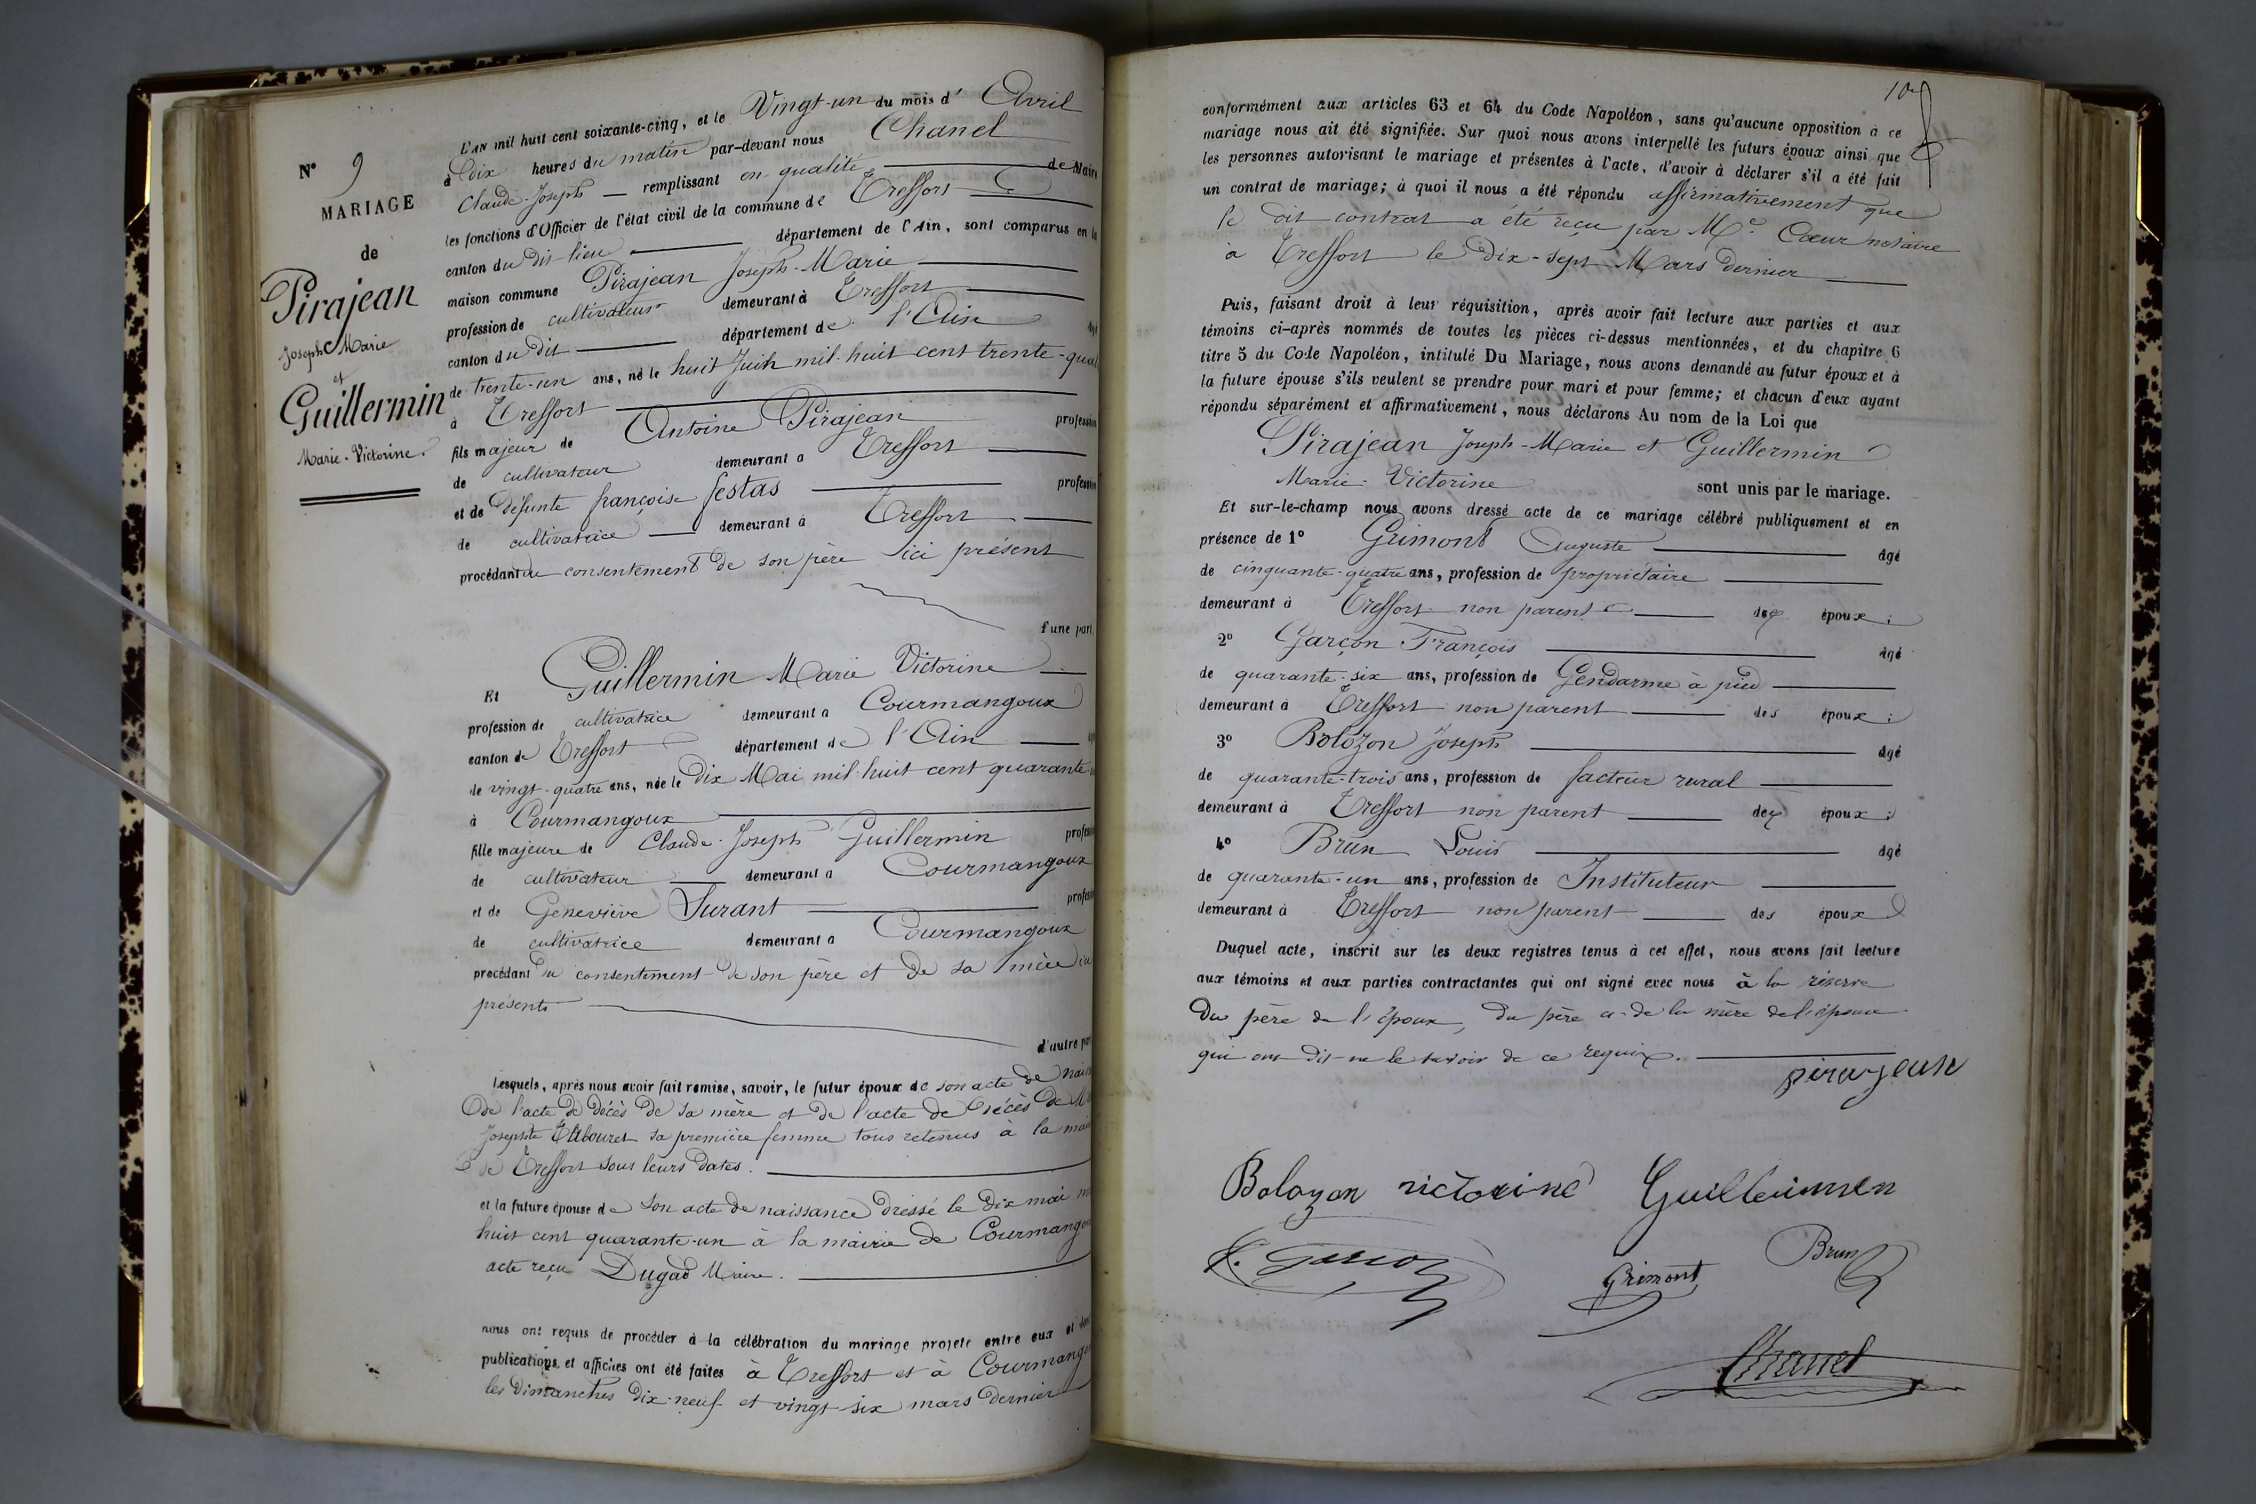 N° 9
MARIAGE
de
Pirajean
Joseph Marie
et
Guillermin
Marie-Victorine.
L'AN mil huit cent soixante-cinq, et le Vingt-un du mois d' Avril
à Dix heures du matin par-devant nous Chanel
Claude-Joseph remplissant en qualité de Maire
les fonctions d'Officier de l'état civil de la commune de Treffort
canton du dit lieu département de l'Ain, sont comparus en la
maison commune Pirajean Joseph-Marie
profession de cultivateur demeurant à Treffort
canton du dit département de l'Ain
de trente-un ans, né le huit Juin mil huit cent trente-quat
à Treffort
fils majeur de Antoine Pirajean profession
de cultivateur demeurant à Treffort
et de défunte françoise festas profession
de cultivatrice demeurant à Treffort
procédant du consentement de son père ici présent
d'une part,
Et Guillermin Marie Victorine
profession de cultivatrice demeurant à Courmangoux
canton de Treffort département de l'Ain
de vingt-quatre ans, née le Dix Mai mil huit cent quarante
à Courmangoux
fille majeure de Claude-Joseph Guillermin profess
de cultivateur demeurant à Courmangoux
et de Geneviève Surant profess
de cultivatrice demeurant à Courmangoux
procédant du consentement de son père et de sa mère ici
présents
d'autre par
Lesquels, après nous avoir fait remise, savoir, le futur époux de son acte de nais
de l'acte de décès de sa mère et de l'acte de décès de M
Josephte sa première femme tous retenus à la mai
de Treffort sous leurs dates.
et la future épouse de son acte de naissance dressé le dix mai m
huit cent quarante-un à la mairie de Courmangou
acte reçu Dugad Maire.
nous ont requis de procéder à la célébration du mariage projeté entre eux et dont
publications et affiches ont été faites à Treffort et à Courmangou
les dimanches dix-neuf et vingt-six mars dernier
10
conformément aux articles 63 et 64 du Code Napoléon, sans qu'aucune opposition à ce
mariage nous ait été signifiée. Sur quoi nous avons interpellé les futurs époux ainsi que
les personnes autorisant le mariage et présentes à l'acte, d'avoir à déclarer s'il a été fait
un contrat de mariage; à quoi il nous a été répondu affirmativement que
le dit contrat a été reçu par Me Cœur notaire
à Treffort le Dix-sept Mars dernier
Puis, faisant droit à leur réquisition, après avoir fait lecture aux parties et aux
témoins ci-après nommés de toutes les pièces ci-dessus mentionnées, et du chapitre 6
titre 5 du Code Napoléon, intitulé Du Mariage, nous avons demandé au futur époux et à
la future épouse s'ils veulent se prendre pour mari et pour femme; et chacun d'eux ayant
répondu séparément et affirmativement, nous déclarons Au nom de la Loi que
Pirajean Joseph-Marie et Guillermin
Marie-Victorine sont unis par le mariage.
Et sur-le-champ nous avons dressé acte de ce mariage célébré publiquement et en
présence de 1° Grimont Auguste âgé
de cinquante-quatre ans, profession de propriétaire
demeurant à Treffort non parent des époux;
2° Garçon François âgé
de quarante-six ans, profession de Gendarme à pied
demeurant à Treffort non parent des époux;
3° Bolozon Joseph âgé
de quarante-trois ans, profession de facteur rural
demeurant à Treffort non parent des époux;
4° Brun Louis âgé
de quarante-un ans, profession de Instituteur
demeurant à Treffort non parent des époux
Duquel acte, inscrit sur les deux registres tenus à cet effet, nous avons fait lecture
aux témoins et aux parties contractantes qui ont signé avec nous à la réserve
du père de l'époux, du père et de la mère de l'épouse
qui ont dit ne le savoir de ce requis.
pirajean
Bolozon victorine Guillermin
Brun
F. Garçon Grimont
Chanel